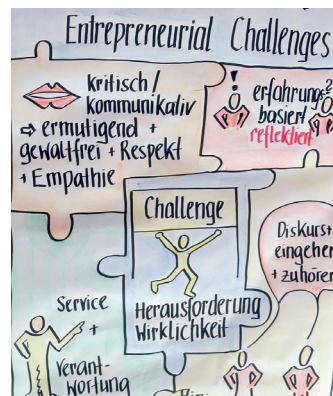 Entrepreneurial Challenges
kritisch /
kommunikativ
⇨ ermutigend +
gewaltfrei + Respekt
+ Empathie
! ?
erfahrungs
basiert
reflektiert
Challenge
Herausforderung
Wirklichkeit
Diskurs+
eingehen
+ zuhören
Service
+
Verant-
wortung